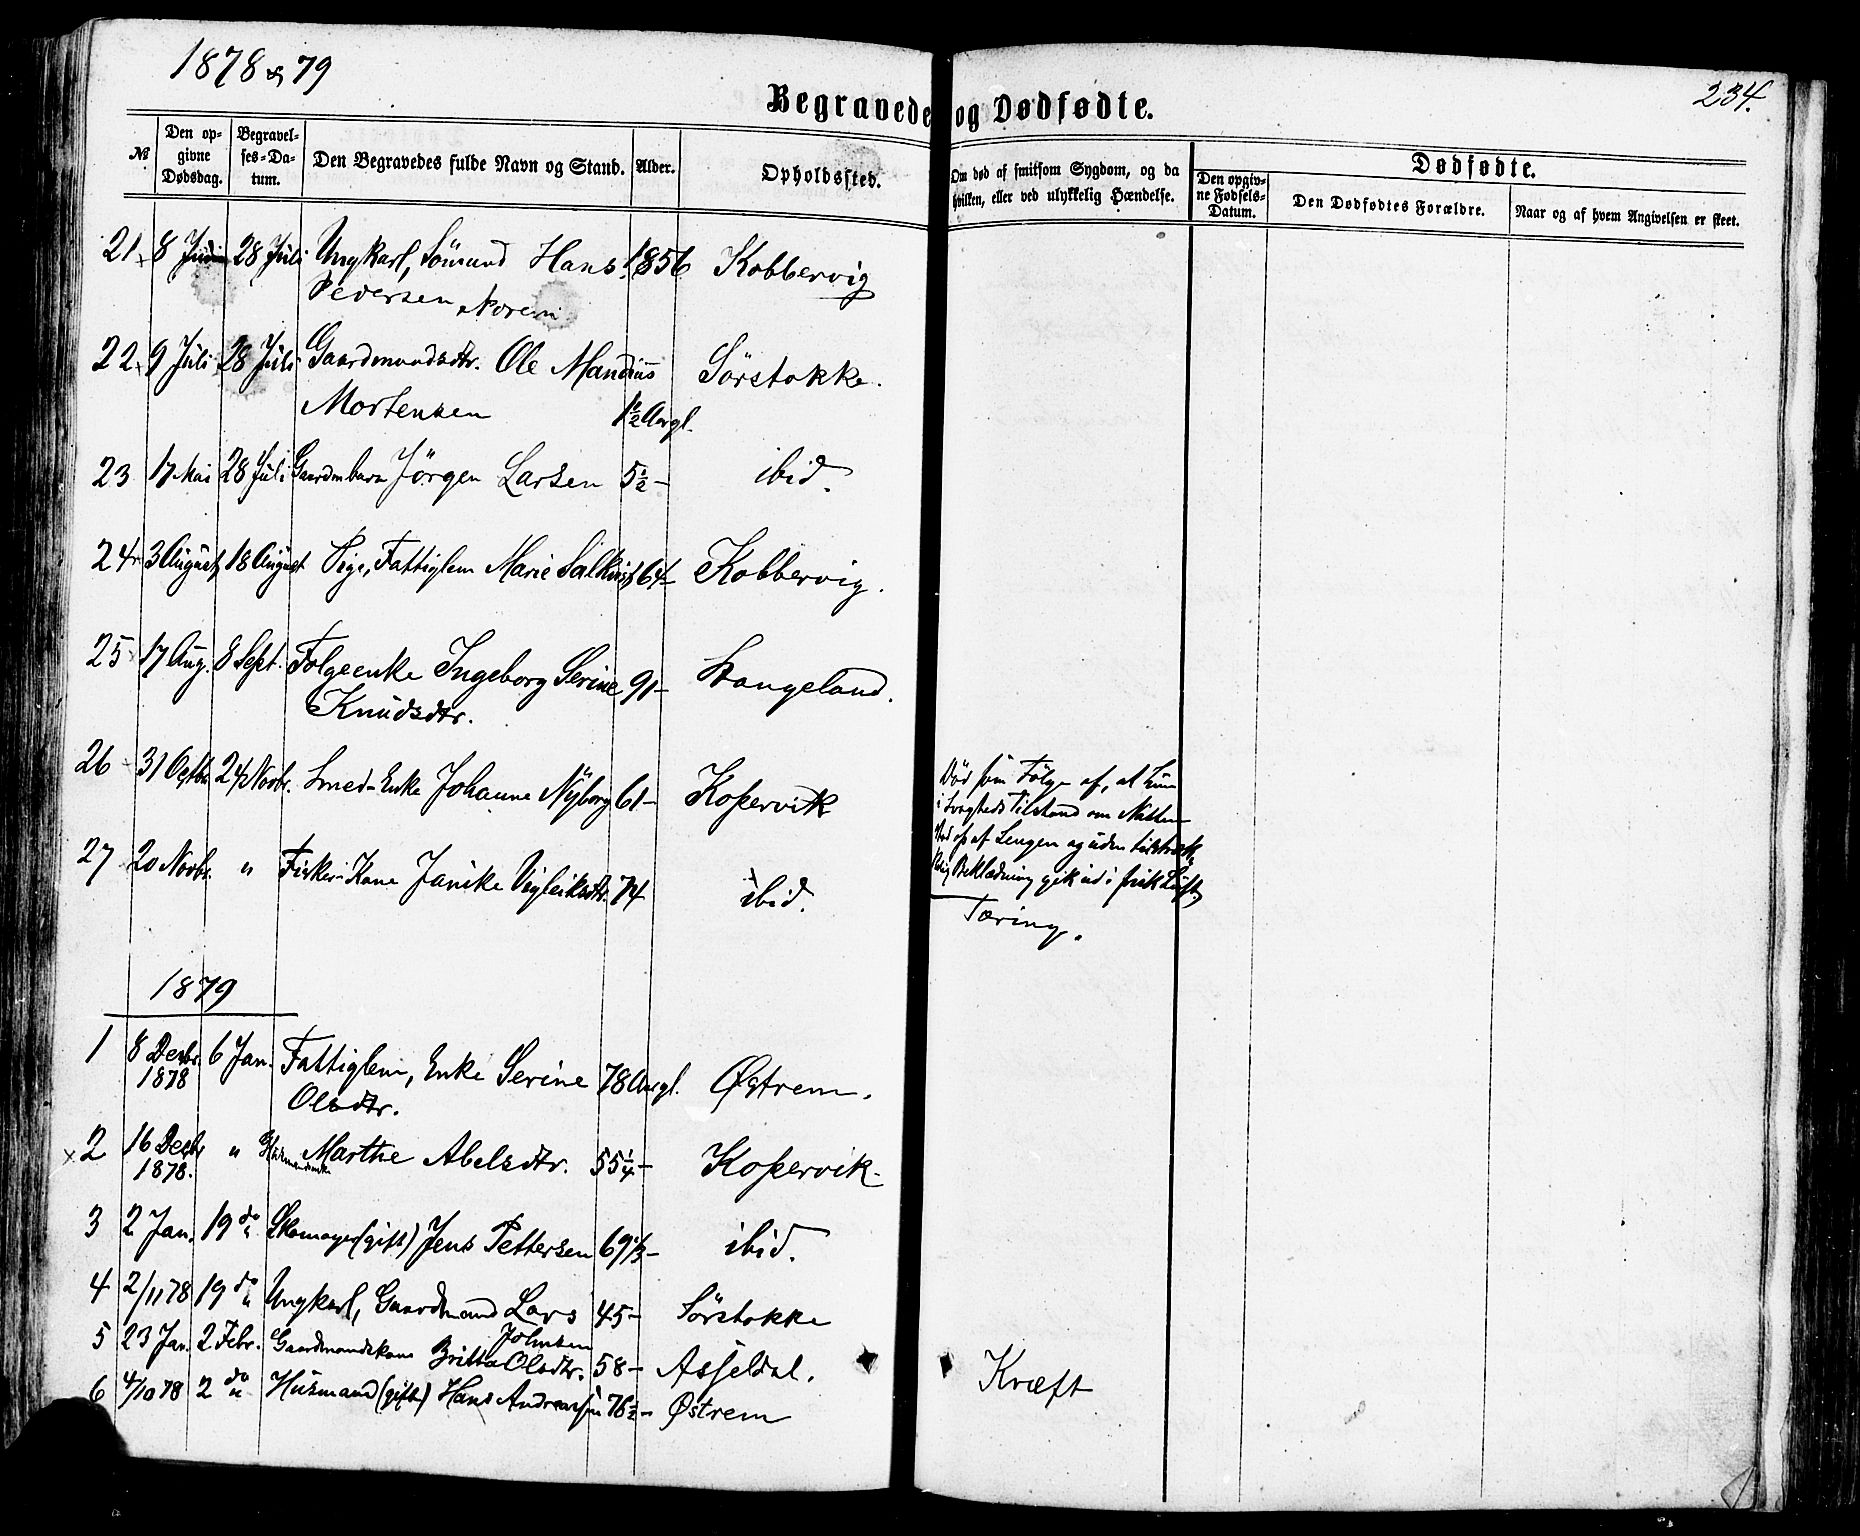 1878 & 79
234.
Begravede og Dødfødte.
№
Den opgivne Dødsdag.
Begravelses-Datum.
Den Begravedes fulde Navn og Stand.
Alder.
Opholdssted.
Om død af smitsom Sygdom, og da
hvilken, eller ved ulykkelig Hændelse.
Dødfødte.
Den opgivne Fødsels-Datum.
Den Dødfødtes Forældre.
Naar og af hvem Angivelsen er skeet.
21 8 28 Juli Ungkarl, Sömund Hans 1856 Kobbervig
Pedersen Norem
22 9 Juli 28 Juli Gaardmandsdtr. Ole Mandius Sörstokke.
Mortensen 1½ Aargl.
23 17 Mai 28 Juli Gaardmbarn Jörgen Larsen 5½ – ibid.
24 3 August 18 August Pige, Fattiglem Marie 64 – Kobbervig.
25 17 Aug. 8 Sept. Folgeenke Ingeborg Serine 91 – Stangeland.
Knudsdtr.
26 31 Octbr 24 Novbr. Smed-Enke Johanne Nÿborg 61 – Kopervik
Död som Fölge af, at hun
i Svagheds Tilstand om Natten
stod op af Sengen og uden tilstræk-
kelig Beklædning gik ud i frisk Luft.
27 20 Novbr. " Fisker-Kone Janike Vigleiksdtr. 74 ibid.
Tæring.
1879
1 8 Decbr. 6 Jan. Fattiglem, Enke Serine 78 Aargl. Østrem.
1878 Olsdtr.
2 16 Decbr " Marthe Abelsdtr. 55¼ – Kopervik
1878.
3 2 Jan. 19 do Skomager (gift) Jens Pettersen 69⅓ – ibid.
4 2/11 78 19 do Ungkarl, Gaardmand Lars 45 – Sörstokke
Johnsen
5 23 Jan. 2 Febr. Gaardmandskone Britta Olsdtr. 58 – Asseldal. Kræft
6 4/10 78 2 do Husmand (gift) Hans Andreassen 76½ – Østrem